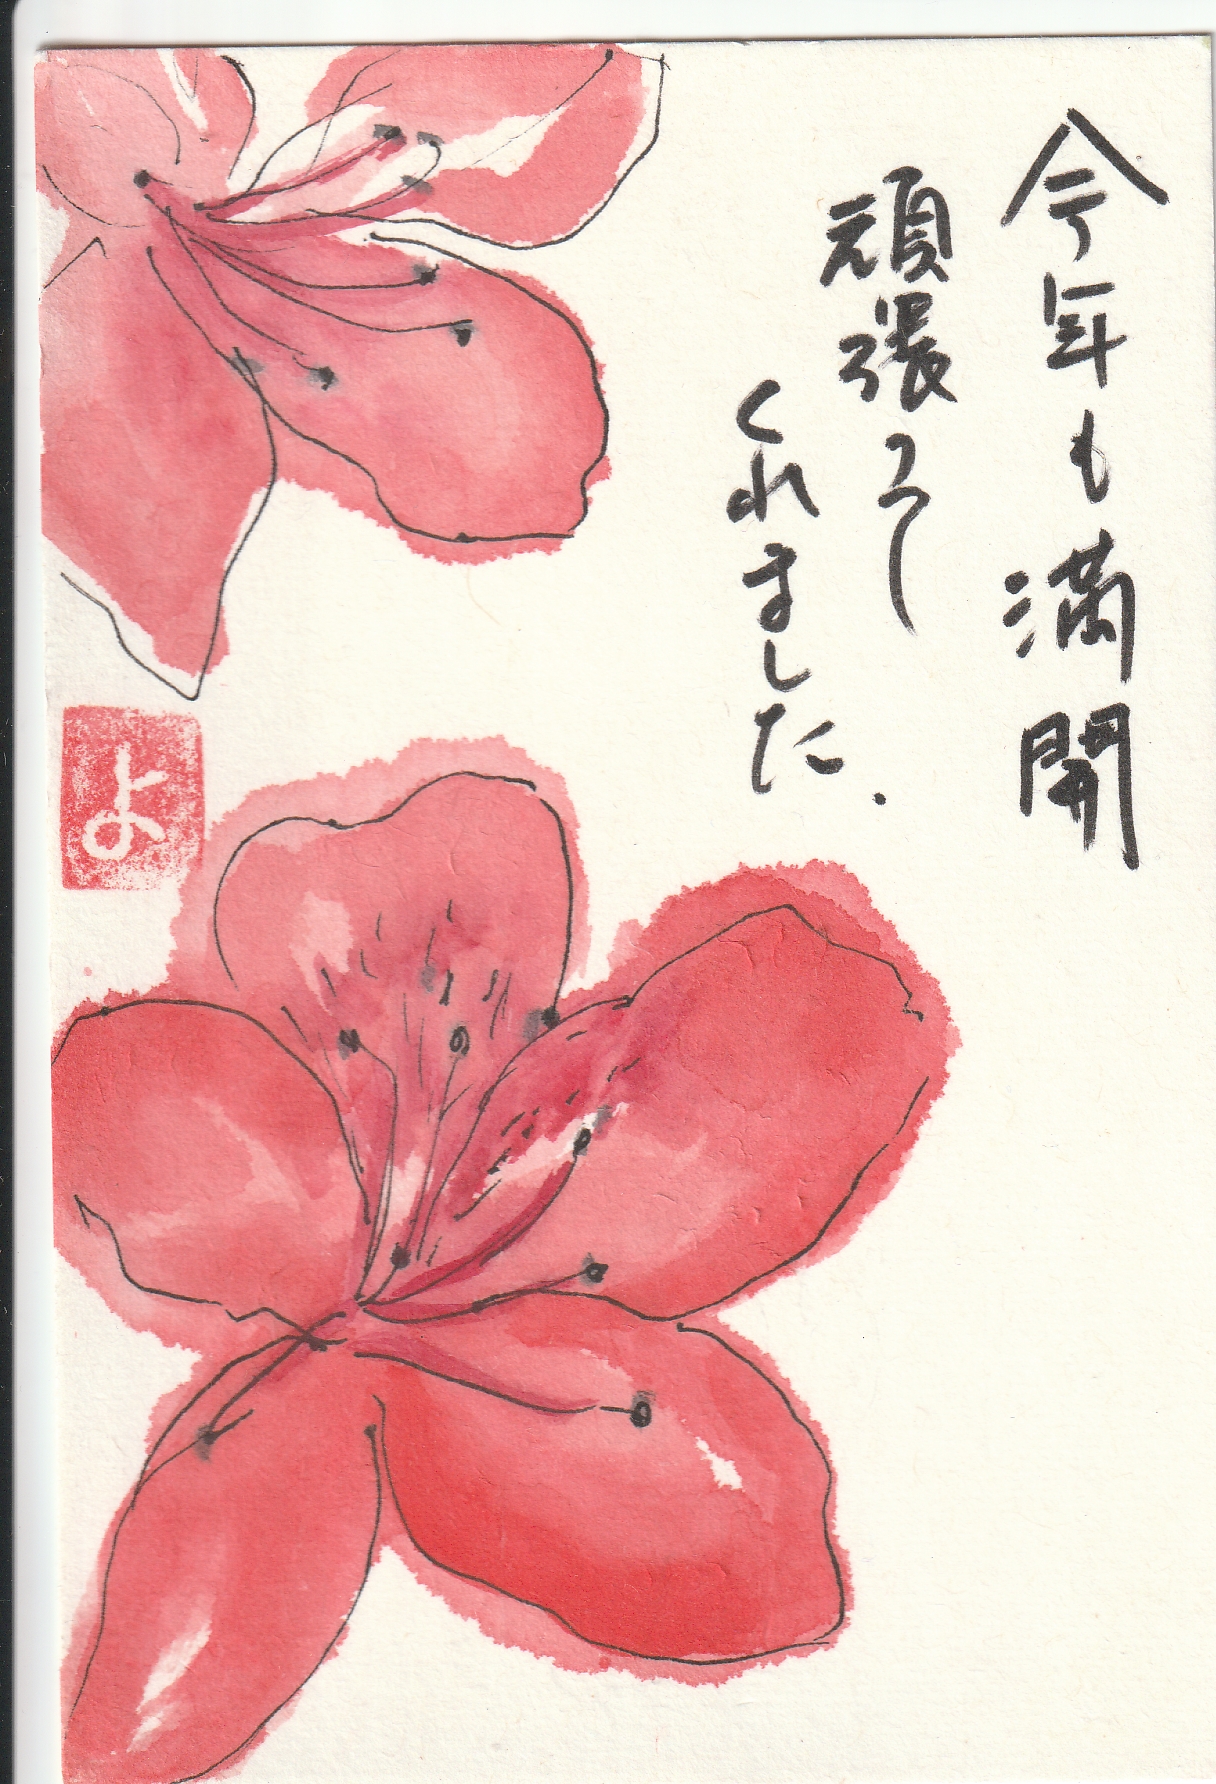 今年も満開
頑張って
くれました.
よ